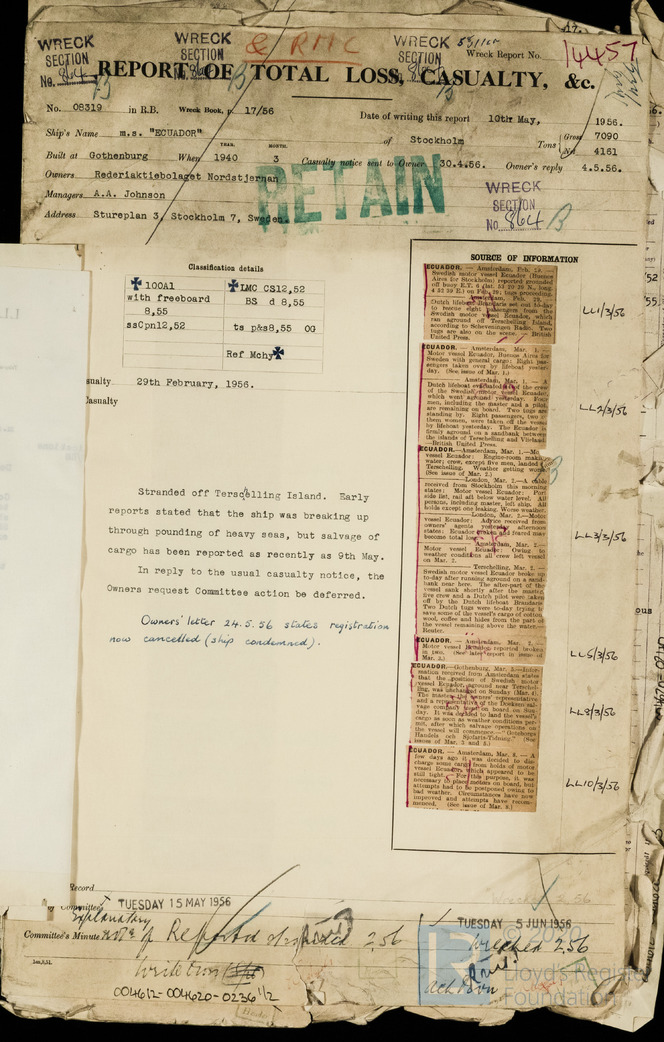 WRECK SECTION No. 864
WRECK SECTION
WRECK SECTION
& RMC
Wreck Report No. 14457
REPORT OF TOTAL LOSS, CASUALTY, &c.
No. 08319 in R.B. Wreck Book, p. 17/56
Date of writing this report 10th May, 1956.
Ship's Name m.s. "ECUADOR" of Stockholm
Tons Gross 7090
Net 4161
YEAR. MONTH.
Built at Gothenburg When 1940 3 Casualty notice sent to Owner 30.4.56. Owner's reply 4.5.56.
Owners Rederiaktiebolaget Nordstjernan
RETAIN
Managers A.A. Johnson
WRECK SECTION No. 864 B
Address Stureplan 3, Stockholm 7, Sweden.
Classification details
100A1 LMC CS12,52
with freeboard BS d 8,55
8,55
ssCpn12,52 ts p&s8,55 OG
Ref Mchy
29th February, 1956.
Stranded off Terschelling Island. Early
reports stated that the ship was breaking up
through pounding of heavy seas, but salvage of
cargo has been reported as recently as 9th May.
In reply to the usual casualty notice, the
Owners request Committee action be deferred.
Owners' letter 24.5.56 states registration
now cancelled (ship condemned).
SOURCE OF INFORMATION
ECUADOR. — Amsterdam, Feb. 29. —
Swedish motor vessel Ecuador (Buenos
Aires for Stockholm) reported grounded
Dutch lifeboat Brandaris set out to-day
to rescue eight passengers from the
Swedish motor vessel Ecuador, which
ran aground off Terschelling Island,
according to Scheveningen Radio. Two
tugs are also on the scene. — British
United Press.
LL1/3/56
ECUADOR. — Amsterdam, Mar. 1. —
Motor vessel Ecuador, Buenos Aires for
Sweden with general cargo: Eight pas-
sengers taken over by lifeboat yester-
day. (See issue of Mar. 1.)
Amsterdam, Mar. 1. — A
Dutch lifeboat evacuated of the crew
of the Swedish motor vessel Ecuador
which went aground yesterday. Four
men, including the master and a pilot,
are remaining on board. Two tugs are
standing by. Eight passengers, two of
them women, were taken off the vessel
by lifeboat yesterday. The Ecuador is
firmly aground on a sandbank between
the islands of Terschelling and Vlieland.
—British United Press.
LL2/3/56
ECUADOR. — Amsterdam, Mar. 1.—Motor
vessel Ecuador: Engine-room making
water; crew, except five men, landed
Terschelling. Weather getting worse.
(See issue of Mar. 2.)
London, Mar. 2.—A cable
received from Stockholm this morning
states: Motor vessel Ecuador: Port
side list, all below water level. All
persons, including master, left ship. All
holds except one leaking. Worse weather.
London, Mar. 2.—Motor
vessel Ecuador: Advice received from
owners' agents yesterday afternoon
states: Ecuador broken and feared may
become total loss.
Amsterdam, Mar. 2.—
Motor vessel Ecuador: Owing to
weather conditions all crew left vessel
on Mar. 2.
Terschelling, Mar. 2.—
Swedish motor vessel Ecuador broke up
to-day after running aground on a sand-
bank near here. The after-part of the
vessel sank shortly after the master,
five crew and a Dutch pilot were taken
off by the Dutch lifeboat Brandaris.
Two Dutch tugs were to-day trying to
save some of the vessel's cargo of cotton,
wool, coffee and hides from the part of
the vessel remaining above the water.—
Reuter.
LL3/3/56
ECUADOR. — Amsterdam, Mar. 2.—
Motor vessel Ecuador reported broken
in two. (See later report in issue of
Mar. 3.)
LL5/3/56
ECUADOR.—Gothenburg, Mar. 5.—Infor-
mation received from Amsterdam states
that the position of Swedish motor
vessel Ecuador, aground near Terschel-
ling, was unchanged on Sunday (Mar. 4).
The master, the owners' representative
and a representative of the Doeksen sal-
vage company went on board on Sun-
day. It was decided to land the vessel's
cargo as soon as weather conditions per-
mit, after which salvage operations on
the vessel will commence.—"Goteborgs
Handels och Sjofarts-Tidning." (See
issues of Mar. 3 and 5.)
LL8/3/56
ECUADOR. — Amsterdam, Mar. 8. — A
few days ago it was decided to dis-
charge some cargo from holds of motor
vessel Ecuador, which appeared to be
still tight. For this purpose, it was
necessary to place motors on board, but
attempts had to be postponed owing to
bad weather. Circumstances have now
improved and attempts have recom-
menced. (See issue of Mar. 8.)
LL10/3/56
Record
Committee TUESDAY 15 MAY 1956
TUESDAY 5 JUN 1956
Explanatory
Committee's Minute note of Reported stranded 2,56
Wrecked 2,56
Write Own
004612-004620-0236 1/2
LR
© 2020
Lloyd's Register
Foundation